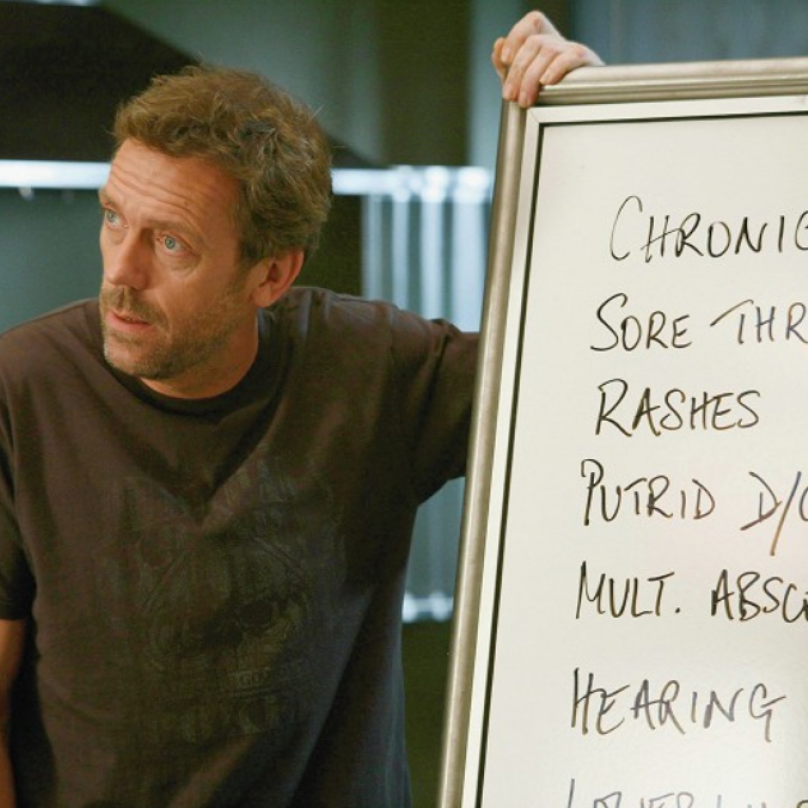 CHRONIC
SORE THR
RASHES
PUTRID D/C
MULT. ABSC
HEARING